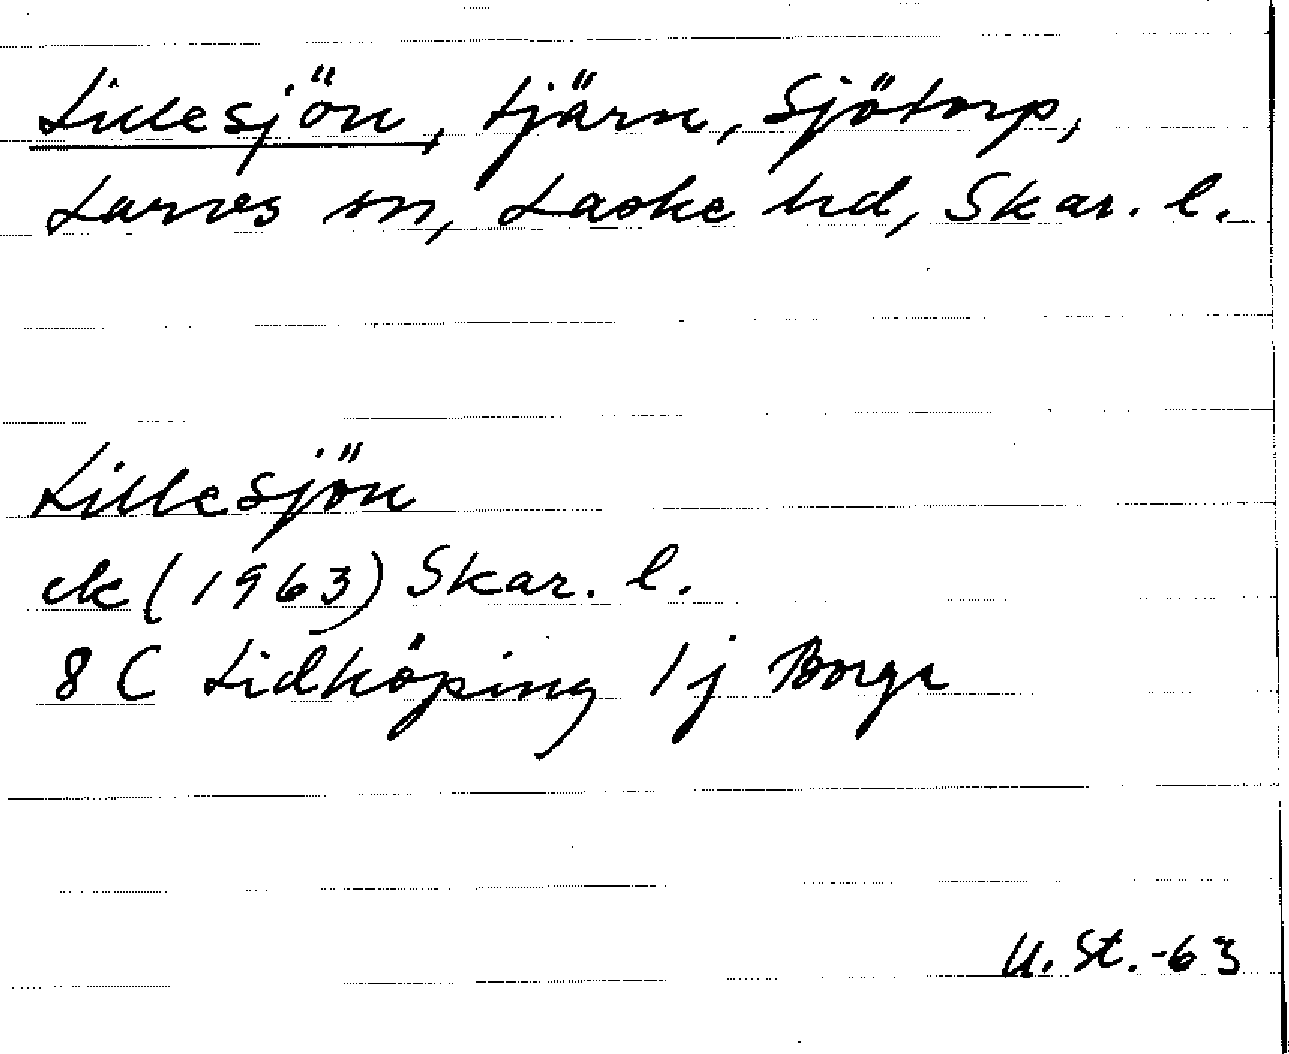 Lillesjön, tjärn, Sjötorp,
Larves sn, Laske hd, Skar. l.
Lillesjön
ek (1963) Skar. l.
8 C Lidköping 1 j Borga
U. St. -63